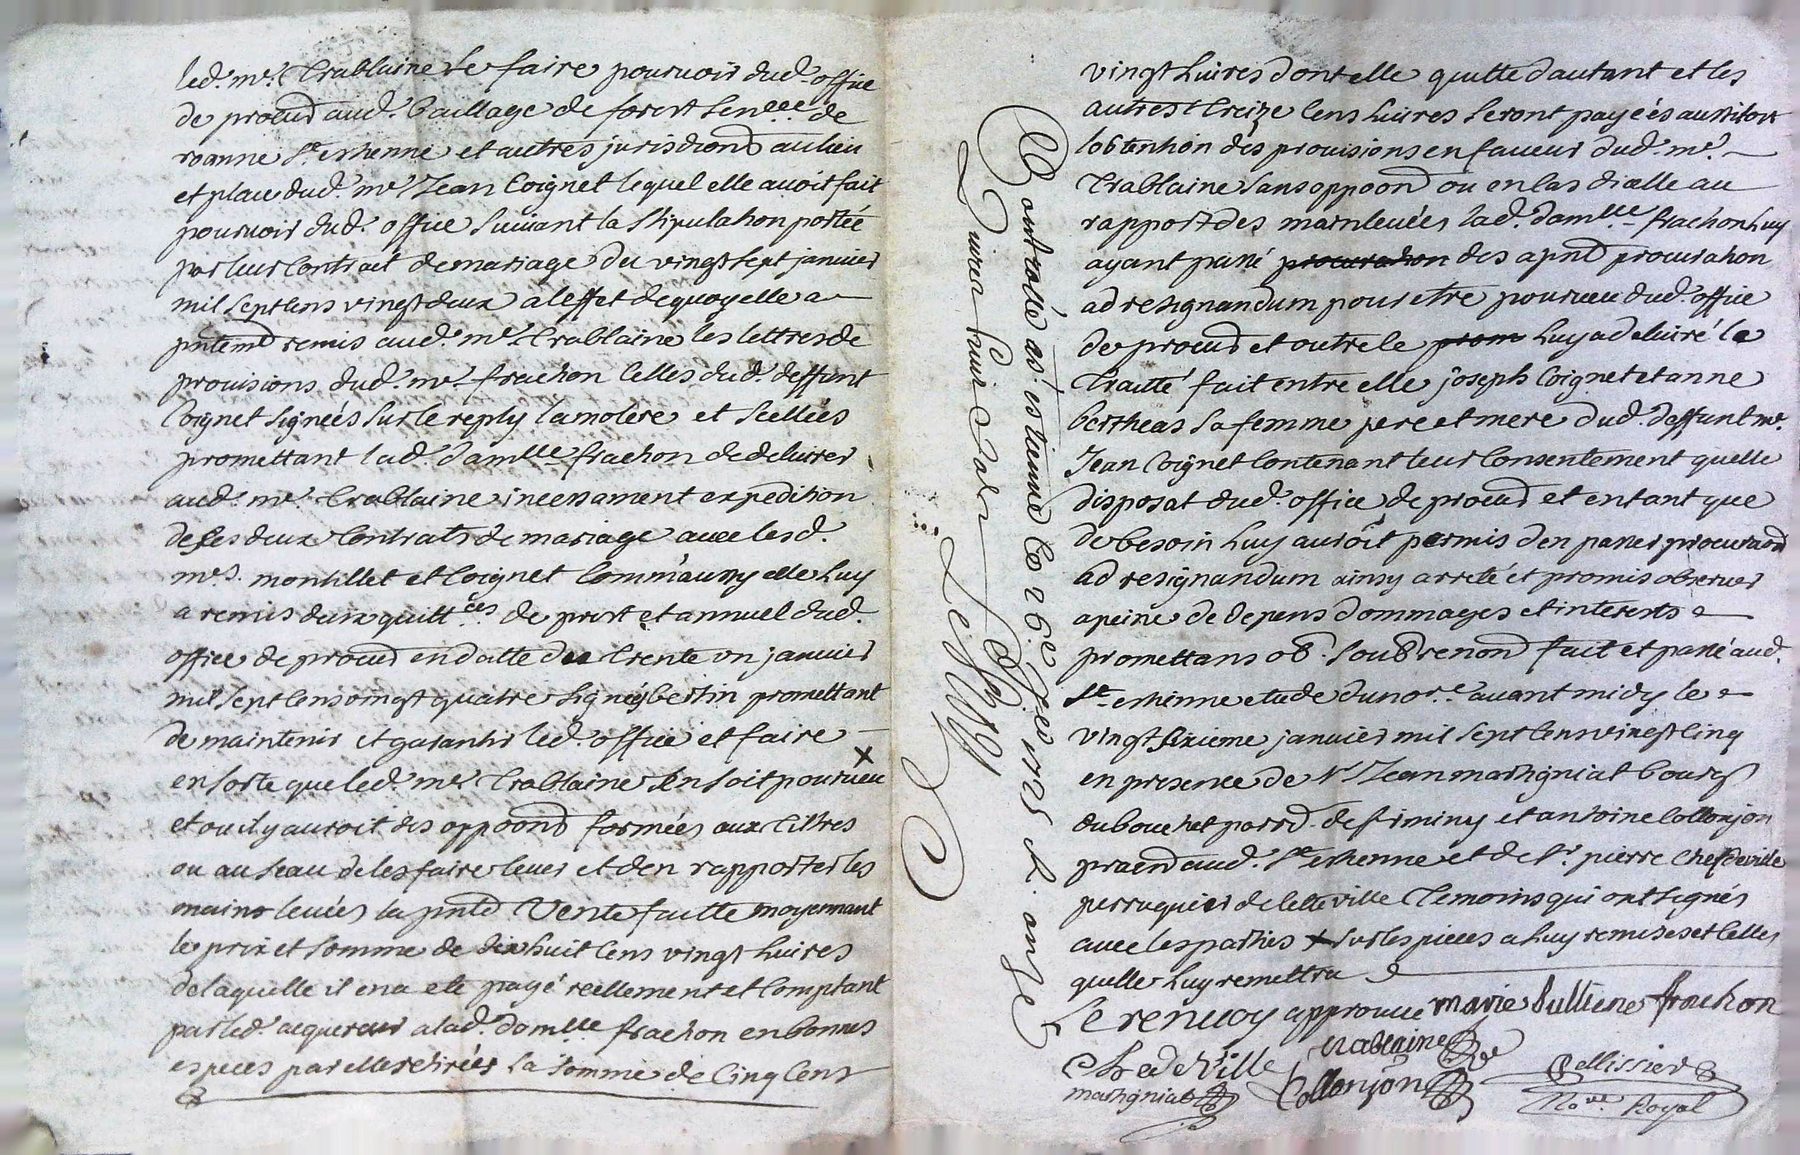 led. me. Trablaine se faire pourvoir dud. office
de procud aud. Baillage de forest Senéée. de
roanne St. estienne et autres jurisdiond au lieu
et place dud. me. Jean Coignet lequel elle avoit fait
pourvoir dud. office suivant la stipulation portée
par leur Contrait de mariage du vingt sept janvier
mil sept cens vingt deux a leffet de quoy elle a
pntemd remis aud. me. Trablaine les lettres de
provisions dud. me. frachon celles dud. deffunt
Coignet signeés sur le reply Lamolere et scelleés
promettant lad. damlle frachon de delivrer
aud. me. Trablaine incessament expedition
de ses deux Contrats de mariage avec lesd.
mes. montillet et Coignet Comm'aussy elle luy
a remis deux quittces de prest et annuel dud.
office de procud en datte du trente un janvier
mil sept cens vingt quatre signéz bertin promettant
de maintenir et garantir led. office et faire
en sorte que led. me Trablaine sen soit pourveu X
et ou il y auroit des oppoond formées aux tiltres
ou au seau de les faire lever et den rapporter les
mains levées la pnte Vente faitte moyennant
le prix et somme de dix huit cens vingt livres
de laquelle il en a eté payé reellement et comptant
par led. acquereur a lad. damlle frachon en bonnes
especes par elle retirées la somme de Cinq cens
Controllé as'. estienne Ce 26e. fev. 1725 R. onze
Livres huit sols
vingt livres dont elle quitte d'autant et les
autres treize cens livres seront payéés aussitost
lobtention des provisions en faveur dud. me.
Trablaine sans oppoond ou en cas dicelle au
rapport des mainlevées lad. damlle frachon luy
ayant passé procuration des a pnd procuration
ad resignandum pour etre pourveu dud. office
de procud et outre le prom luy a delivré le
traitté fait entre elle joseph Coignet et anne
bertheas sa femme pere et mere dud. deffunt me.
Jean Coignet Contenant leur Consentement quelle
disposat dud. office de procud et en tant que
de besoin luy auroit permis den passer procuraod
ad resignandum ainsy arreté et promis observer
a peine de depens dommages et interests
promettans ob. soub renond fait et passé aud.
St. estienne etude dunore. avant midy le
vingt sixieme janvier mil sept cens vingt cinq
en presence de Sr Jean martigniat bourgs
du bouchet parrd. de firminy et antoine Collonjon
praend aud. St estienne et de Sr. pierre Chefdeville
perruquier de cette ville temoins qui ont signés
avec les parties X sur les pieces a luy remises et celles
quelle luy remettra
Le renvoy approuvé marie Jullienne frachon
Chefdeville Trablaine
martigniat Collonjon Pellissier
Nore. Royal